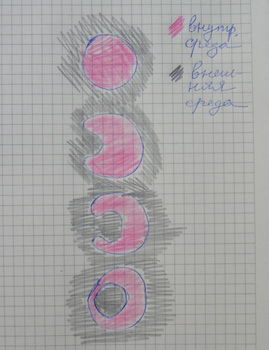 внутр.
среда
внеш-
няя
среда